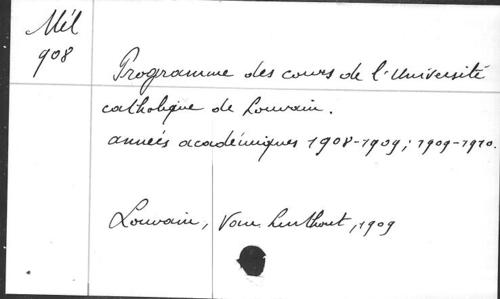 Mél
908
Programme des cours de l'Université
catholique de Louvain.
années académiques 1908-1909; 1909-1910.
Louvain, Van Linthout, 1909